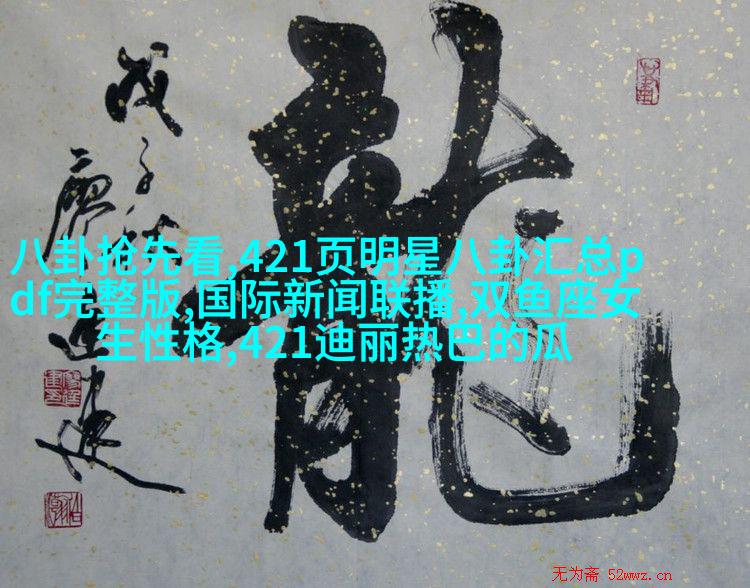 龍
戊子秋
八卦抢先看,421页明星八卦汇总p
df完整版,国际新闻联播,双鱼座女
生性格,421迪丽热巴的瓜
无为斋 52wwz.cn